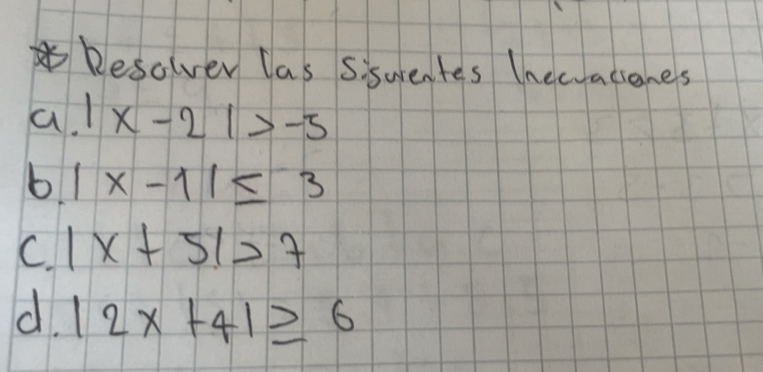 * Resolver las Siguientes Inecuaciones
a. |x-2|>-5
b. |x-1|≤ 3
c. |x+5|>7
d. |2x+4|≥ 6